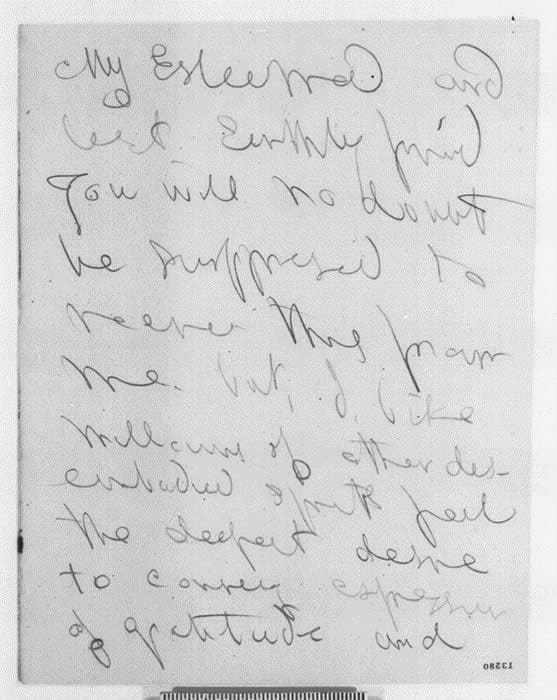 My Esteemed and
best Earthly friend
You will no doubt
be surpprised to
receive this from
me. but, I, like
millions of other des-
embodied spirits feel
the deepest desire
to convey expression
of gratitude and
13280